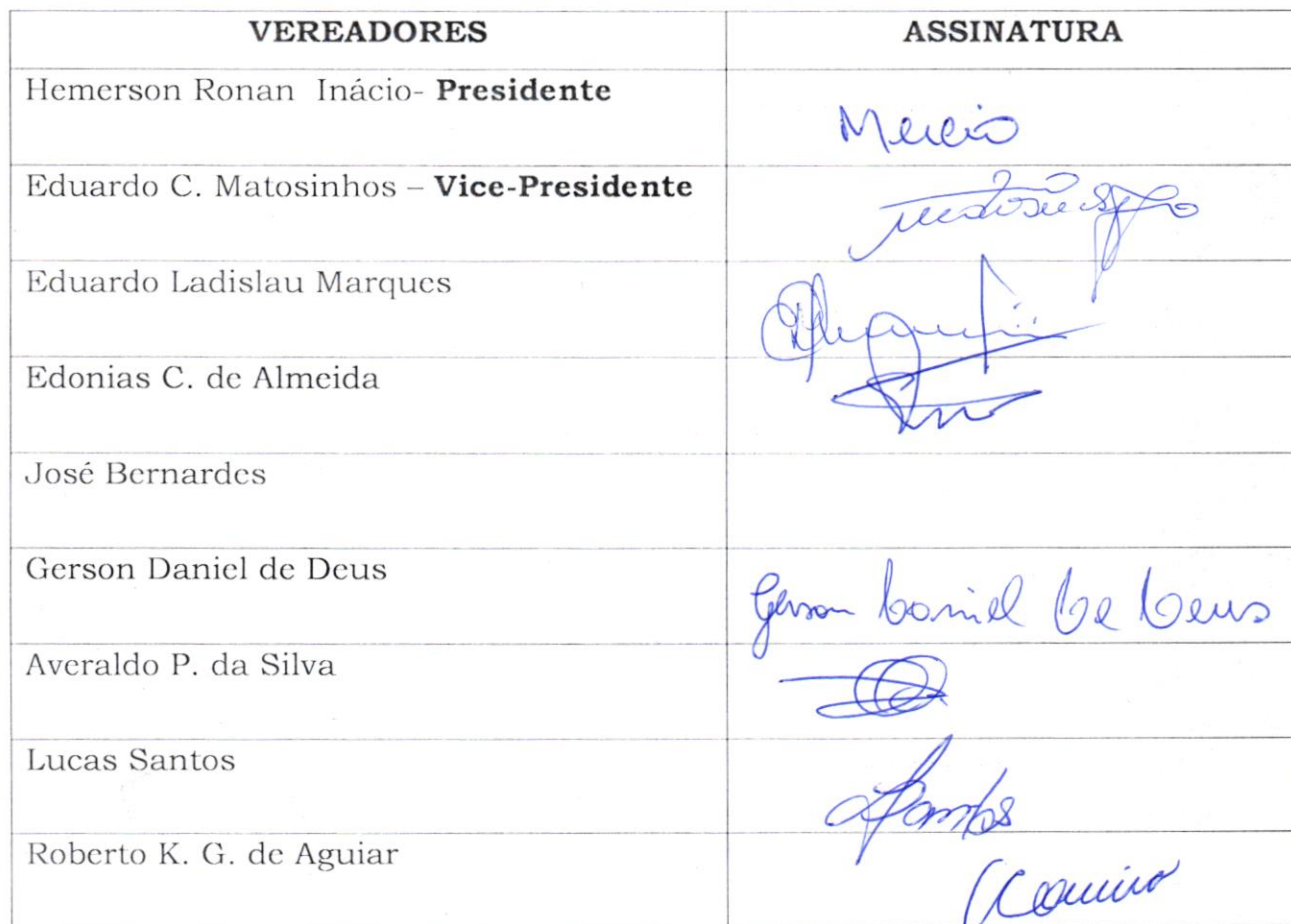 VEREADORES ASSINATURA
Hemerson Ronan Inácio- Presidente
Eduardo C. Matosinhos – Vice-Presidente
Eduardo Ladislau Marques
Edonias C. de Almeida
José Bernardes
Gerson Daniel de Deus
Gerson Daniel De Deus
Averaldo P. da Silva
Lucas Santos
Roberto K. G. de Aguiar